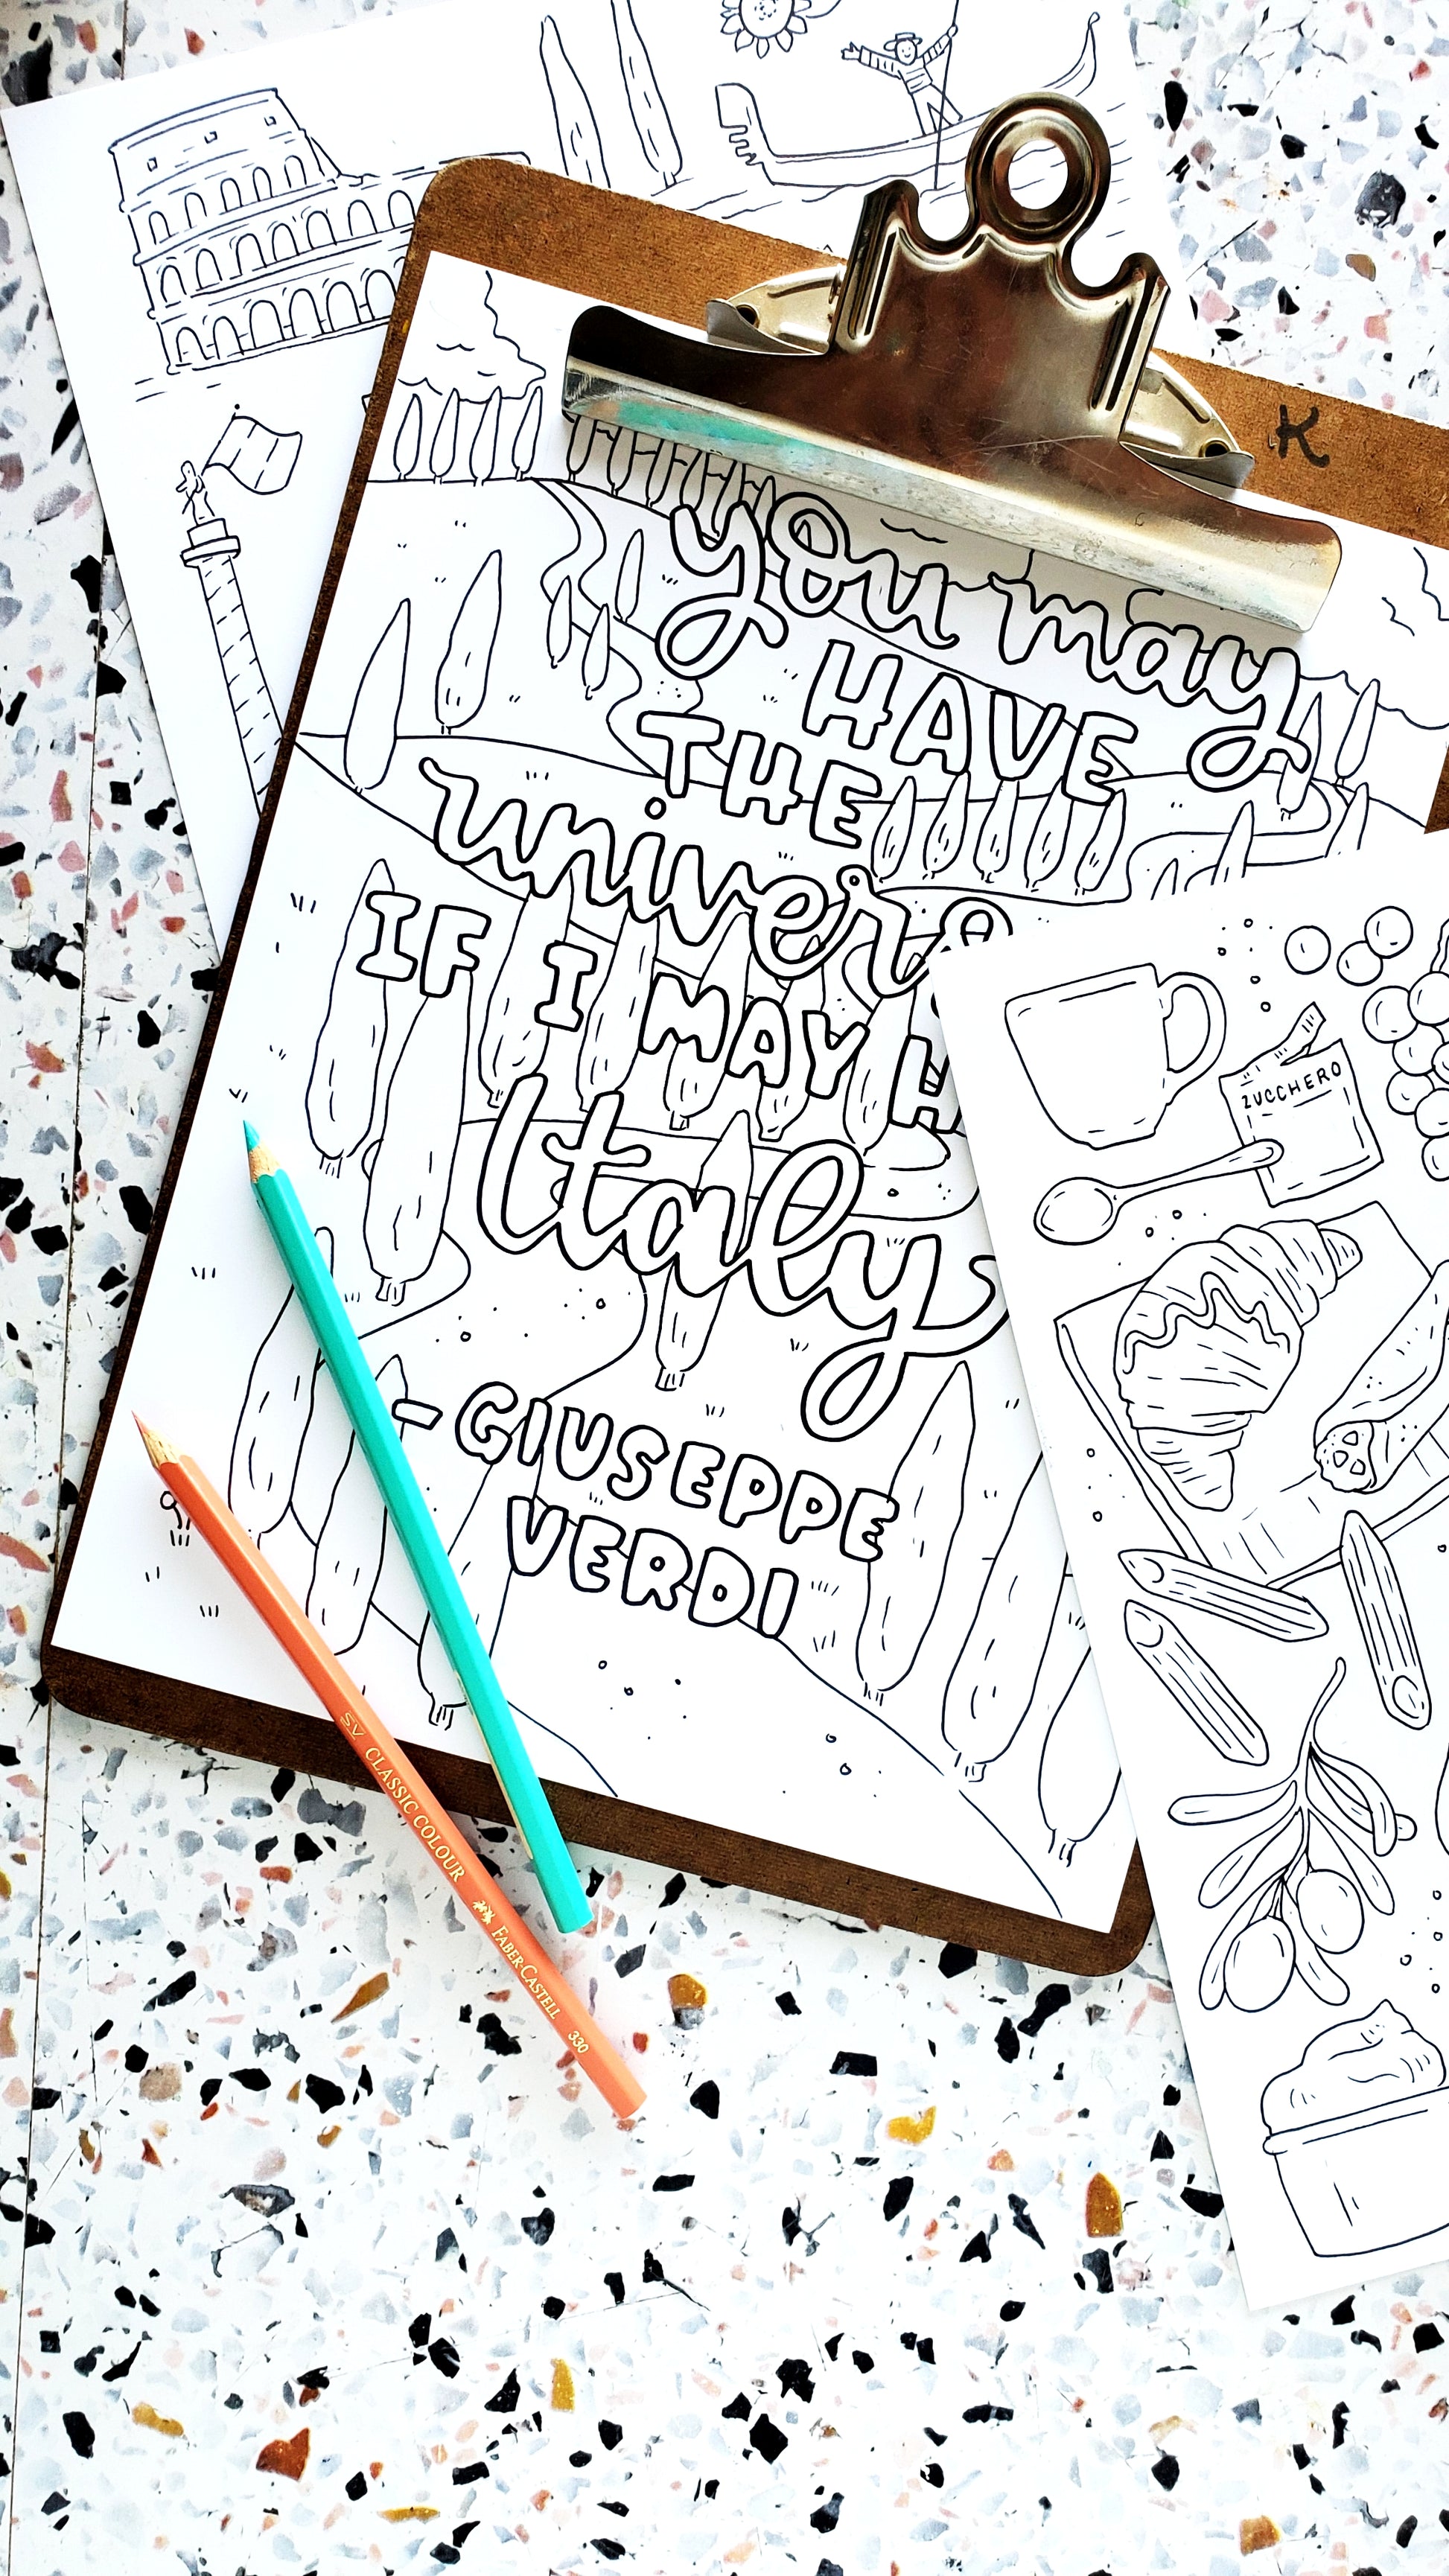 K
you may
HAVE
THE
univers
IF I MAY H
Italy
-GIUSEPPE
VERDI
ZUCCHERO
SV CLASSIC COLOUR FABER-CASTELL 330